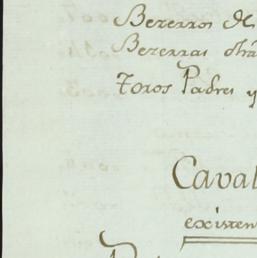 Bezerros de
Bezerras
Toros Padres y
Caval
existen